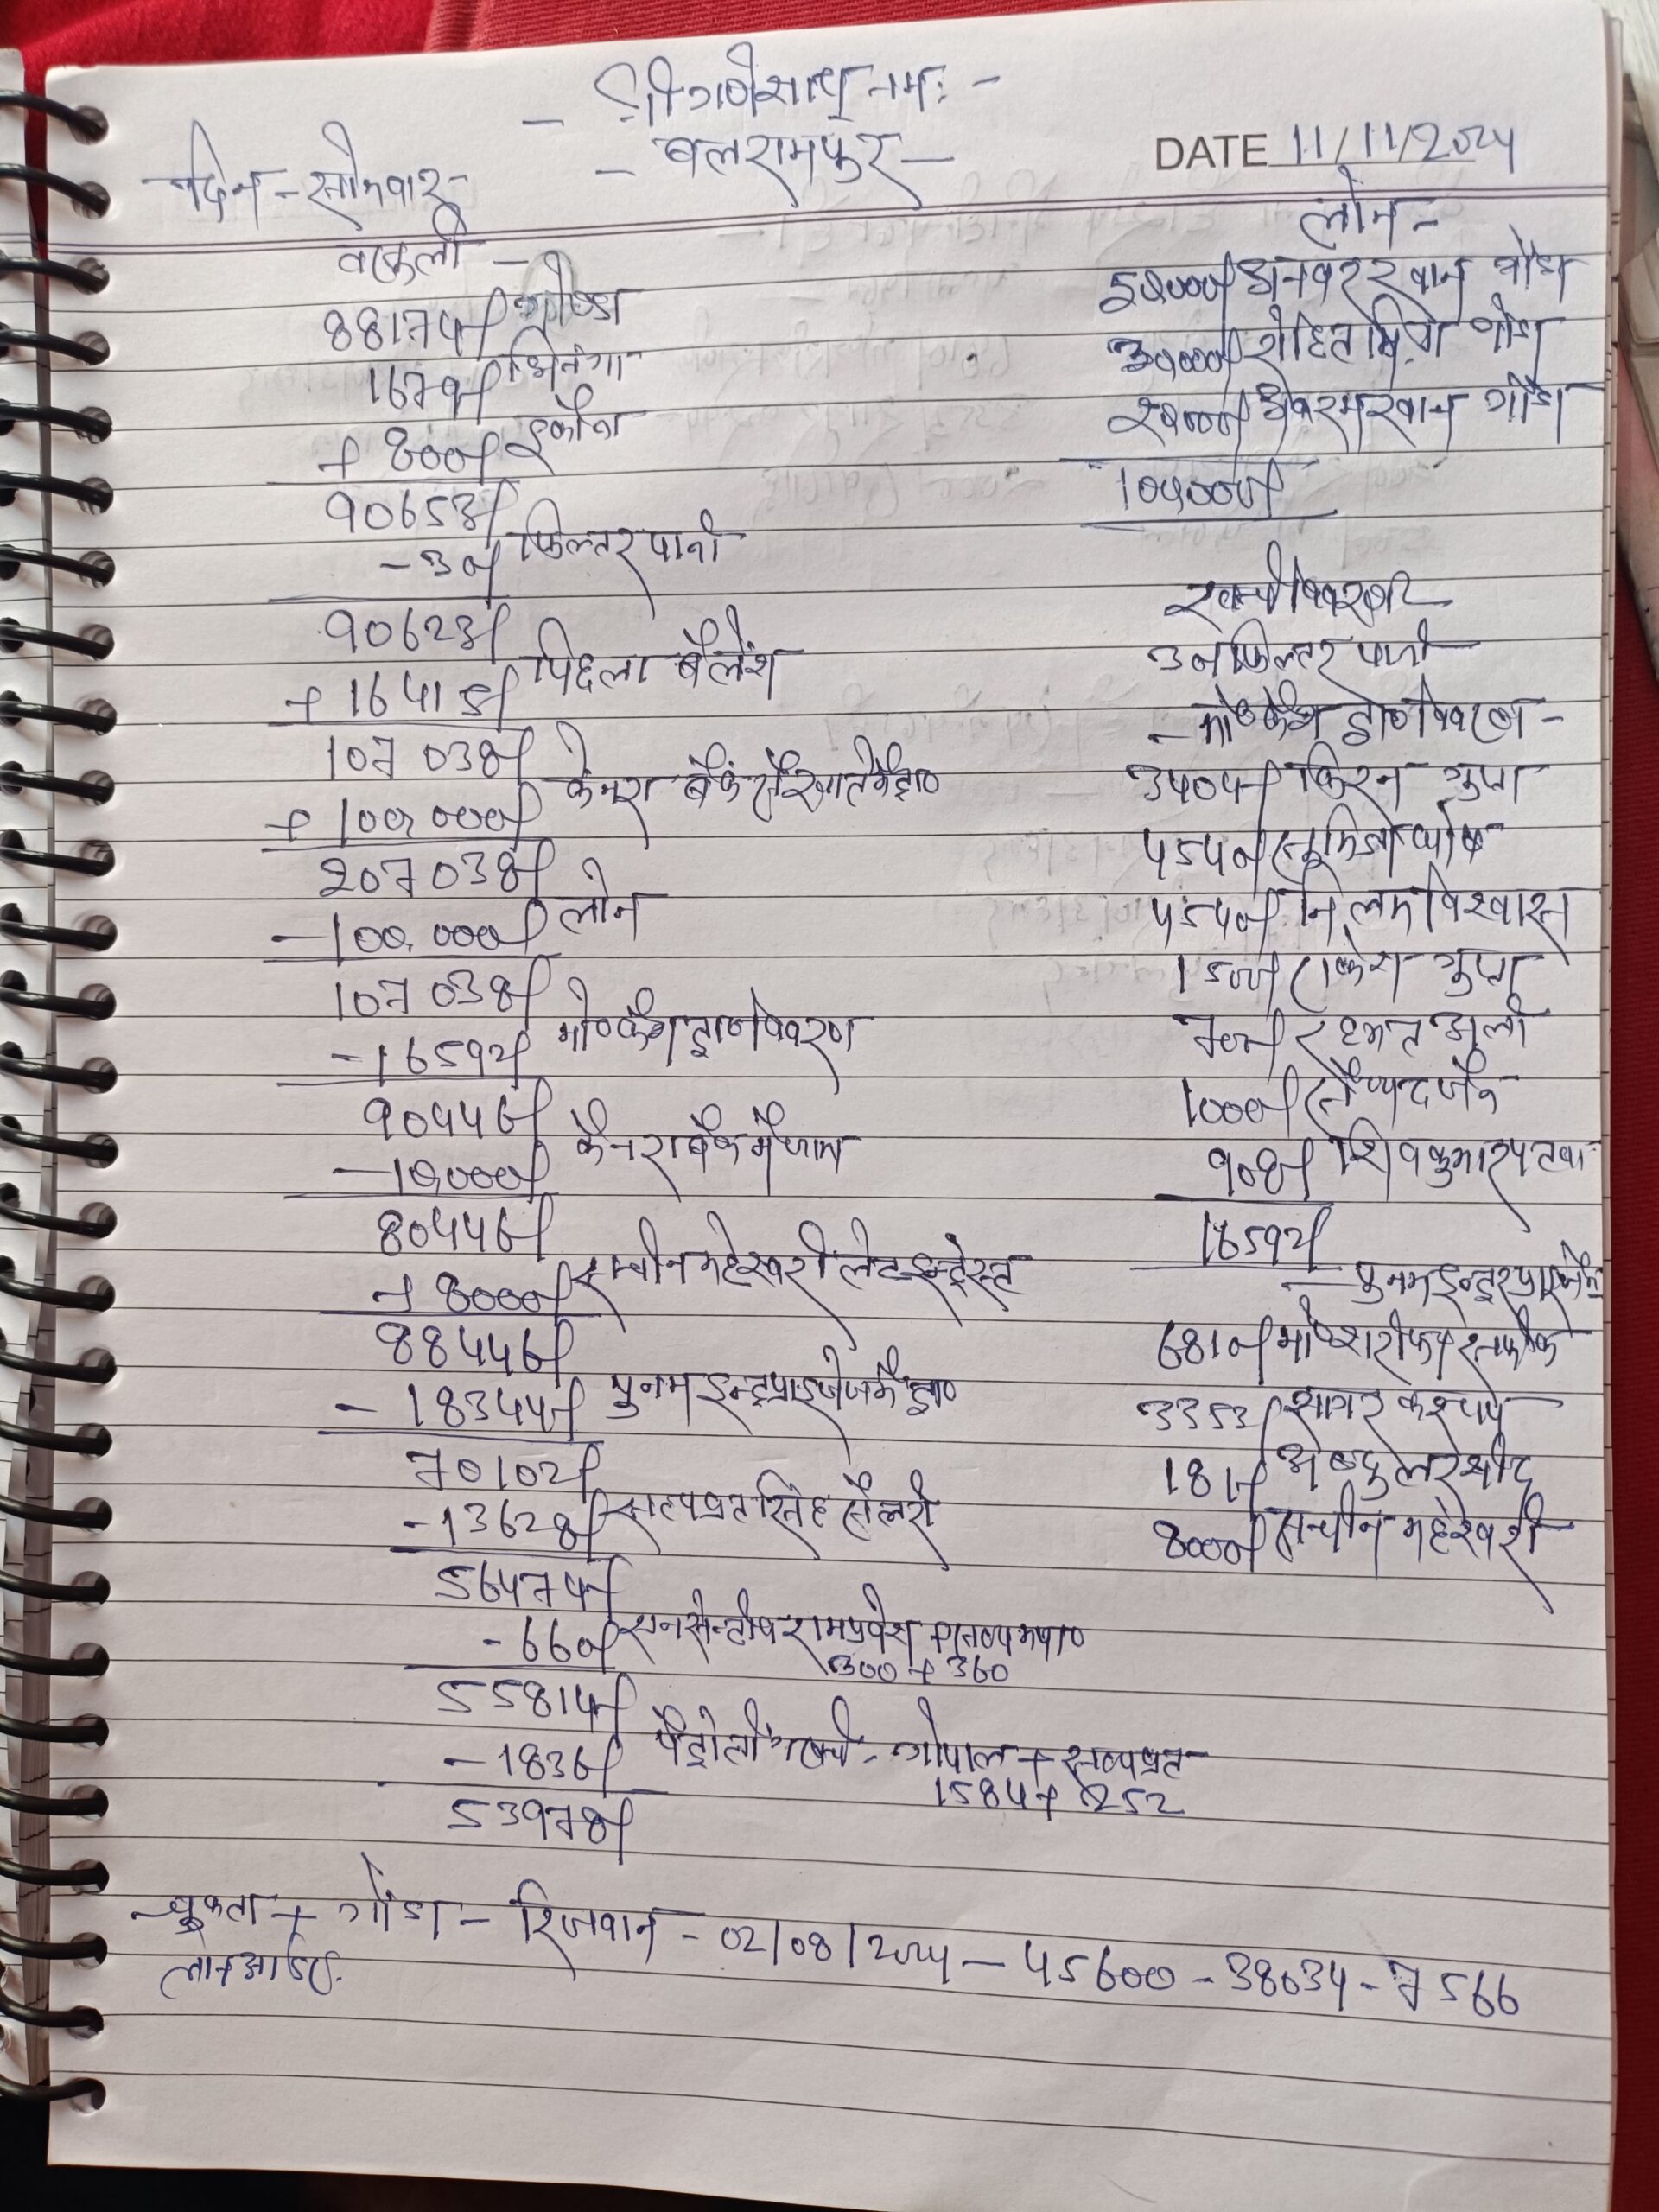 - श्री गणेशाय नमः -
- बलरामपुर -
DATE 11/11/2024
दिन - सोमवार -
वसूली -
88174/ गोण्डा
1679/ भिनगा
+ 800/ इकौना
90653/
- 30/ फिल्टर पानी
90623/
+ 16415/ पिछला बैलेंश
107038/
+ 100,000/ केनरा बैंक से खाते में ड्रा०
207038/
- 100,000/ लोन
107038/
- 16592/ मो० कैश ड्रा० विवरण
90446/
- 10,000/ कैनरा बैंक में जमा
80446/
+ 8000/ सचीन महेश्वरी लेट इन्ट्रेस्ट
88446/
- 18344/ पुनम इन्ट्रप्राइजेज में ड्रा०
70102/
- 13628/ सत्यव्रत सिंह सैलरी
56474/
- 660/ रामप्रवेश +
300 + 360
55814/
- 1836/ पैट्रोल खर्च - गोपाल + सत्यव्रत
1584 + 252
53978/
लोन -
50,000/ अनवर खान गोंडा
30,000/ रोहित सिंग गोंडा
20,000/ अकरम खान गोंडा
100,000/
खर्च विवरण
30/ फिल्टर पानी
- मो० कैश ड्रा० विवरण -
3404/ किरन गुप्ता
4540/ घोष
4540/ निलम विश्वास
1500/ राकेश गुप्ता
700/ रहमत अली
1000/ सैय्यद जैद
908/ शिवकुमार पटवा
16592/
- पुनम इन्ट्रप्राइजेज
6810/ मो०
3353/ सागर कश्यप
181/ अब्दुल रशीद
8000/ सचीन महेश्वरी
चुकता + गोंडा - रिजवान - 02/08/2024 - 45600 - 38034 - 7566
लोन आई०डी०